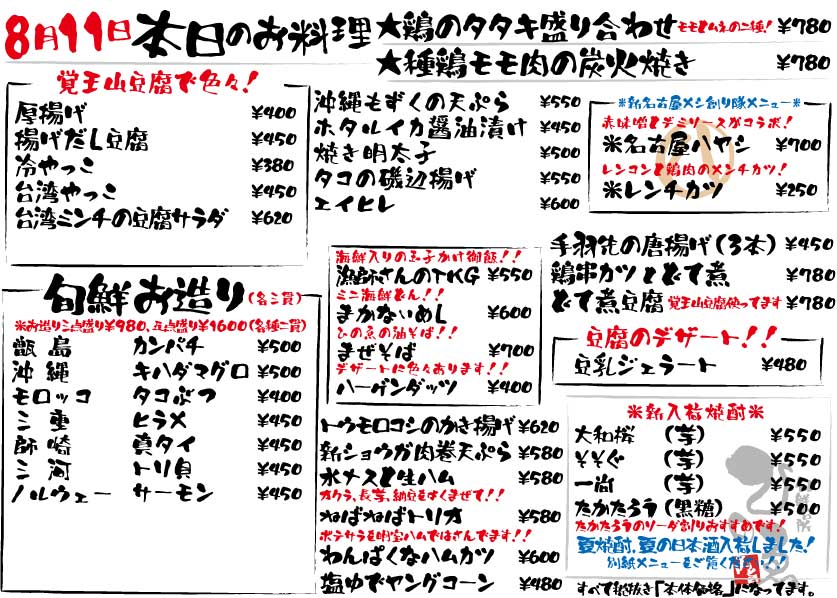 8月11日 本日のお料理
★鶏のタタキ盛り合わせ モモとムネの二種! ¥780
★種鶏モモ肉の炭火焼き ¥780
覚王山豆腐で色々!
厚揚げ ¥400
揚げだし豆腐 ¥450
冷やっこ ¥380
台湾やっこ ¥450
台湾ミンチの豆腐サラダ ¥620
沖縄もずくの天ぷら ¥550
ホタルイカ醤油漬け ¥450
焼き明太子 ¥500
タコの磯辺揚げ ¥550
エイヒレ ¥600
※新名古屋メシ創り隊メニュー※
赤味噌とデミソースがコラボ!
※名古屋ハヤシ ¥700
レンコンと鶏肉のメンチカツ!
※レンチカツ ¥250
旬鮮お造り(各三貫)
※お造り三点盛り¥980、五点盛り¥1600(各種二貫)
甑島 カンパチ ¥500
沖縄 キハダマグロ ¥500
モロッコ タコぶつ ¥400
三重 ヒラメ ¥450
師崎 真タイ ¥450
三河 トリ貝 ¥450
ノルウェー サーモン ¥450
海鮮入りの玉子かけ御飯!!
漁師さんのTKG ¥550
ミニ海鮮どん!!
まかないめし ¥600
ひの魚の油そば!!
まぜそば ¥700
デザートに色々あります!!
ハーゲンダッツ ¥400
トウモロコシのかき揚げ ¥620
新ショウガ肉巻天ぷら ¥580
水ナスと生ハム ¥580
オクラ、長芋、納豆をよくまぜて!!
ねばねばトリオ ¥580
ポテサラを明宝ハムではさんでます!!
わんぱくなハムカツ ¥600
塩ゆでヤングコーン ¥480
手羽先の唐揚げ(3本) ¥450
鶏串カツとどて煮 ¥780
どて煮豆腐 覚王山豆腐使ってます ¥780
豆腐のデザート!!
豆乳ジェラート ¥480
※新入荷焼酎※
大和桜 (芋) ¥550
そそぐ (芋) ¥550
一尚 (芋) ¥550
たかたろう(黒糖) ¥500
たかたろうのソーダ割りおすすめです!
夏焼酎、夏の日本酒入荷しました!
別紙メニューをご覧ください!!
すべて税抜き「本体価格」になってます。